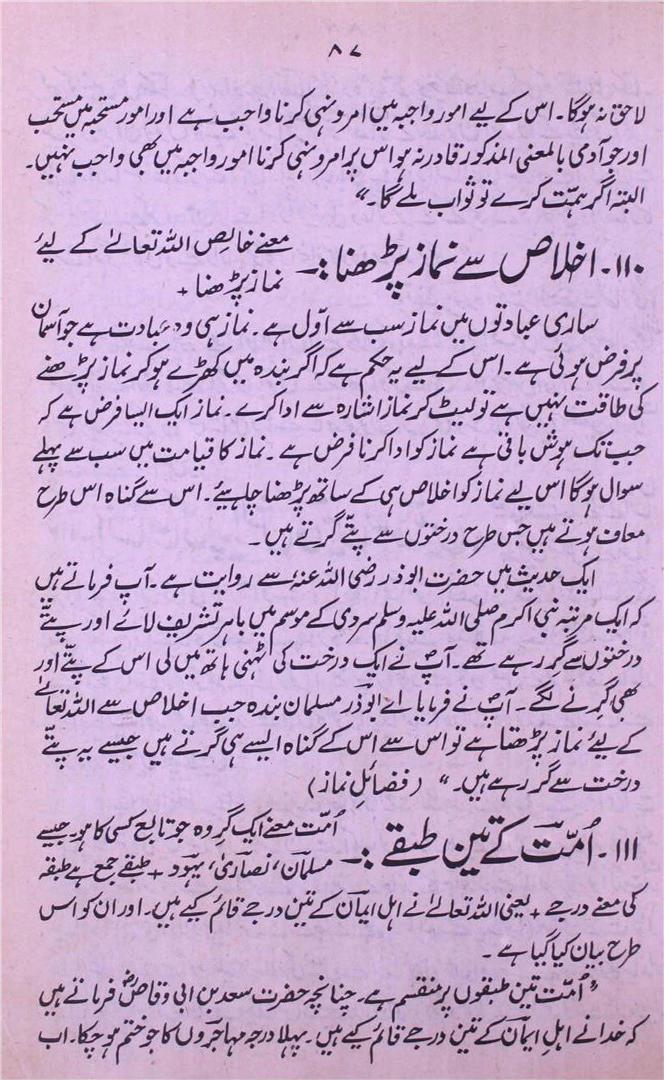 ۸۷
لاحق نہ ہوگا۔ اس کے لیے امور واجبہ میں امر و نہی کرنا واجب ہے اور امور مستحبہ میں مستحب
اور جو آدمی بالمعنی المذکور قادر نہ ہو اس پر امر و نہی کرنا امور واجبہ میں بھی واجب نہیں۔
البتہ اگر ہمّت کرے تو ثواب ملے گا۔“
۱۱۰۔ اخلاص سے نماز پڑھنا :۔ معنے خالص اللہ تعالےٰ کے لیے
نماز پڑھنا +
ساری عبادتوں میں نماز سب سے اوّل ہے۔ نماز ہی وہ عبادت ہے جو آسمان
پر فرض ہوئی ہے۔ اس کے لیے یہ حکم ہے کہ اگر بندہ میں کھڑے ہو کر نماز پڑھنے
کی طاقت نہیں ہے تو لیٹ کر نماز اشارہ سے ادا کرے۔ نماز ایک ایسا فرض ہے کہ
جب تک ہوش باقی ہے نماز کو ادا کرنا فرض ہے۔ نماز کا قیامت میں سب سے پہلے
سوال ہوگا اس لیے نماز کو اخلاص ہی کے ساتھ پڑھنا چاہیئے۔ اس سے گناہ اس طرح
معاف ہوتے ہیں جس طرح درختوں سے پتّے گرتے ہیں۔
ایک حدیث میں حضرت ابوذر رضی اللہ عنہٗ سے روایت ہے۔ آپ فرماتے ہیں
کہ ایک مرتبہ نبی اکرم صلی اللہ علیہ وسلم سردی کے موسم میں باہر تشریف لائے اور پتّے
درختوں سے گر رہے تھے۔ آپؐ نے ایک درخت کی ٹہنی ہاتھ میں لی اس کے پتّے اور
بھی گرنے لگے۔ آپؐ نے فرمایا اے ابوذر مسلمان بندہ جب اخلاص سے اللہ تعالےٰ
کے لیئے نماز پڑھتا ہے تو اس سے اس کے گناہ ایسے ہی گرتے ہیں جیسے یہ پتّے
درخت سے گر رہے ہیں۔“ (فضائلِ نماز)
۱۱۱۔ اُمّت کے تین طبقے :۔ اُمّت معنے ایک گروہ جو تابع کسی کا ہو۔ جیسے
مسلمان، نصاریٰ، یہود + طبقے جمع ہے طبقہ
کی معنے درجے + یعنی اللہ تعالےٰ نے اہل ایمان کے تین درجے قائم کیے ہیں۔ اور ان کو اس
طرح بیان کیا گیا ہے۔
”اُمّت تین طبقوں پر منقسم ہے۔ چنانچہ حضرت سعد بن ابی وقاصؓ فرماتے ہیں
کہ خدا نے اہلِ ایمان کے تین درجے قائم کیے ہیں۔ پہلا درجہ مہاجروں کا جو ختم ہو چکا۔ اب